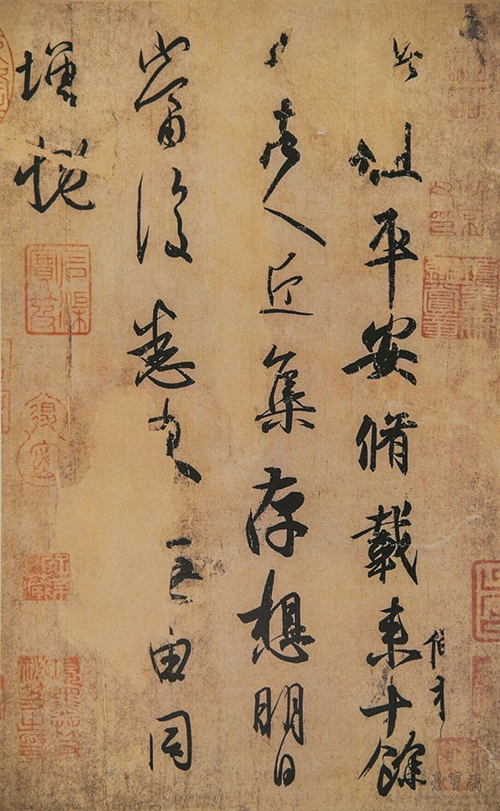 此粗平安脩載來十餘
日諸人近集存想明日
當復悉來无由同
增慨
石渠寶笈